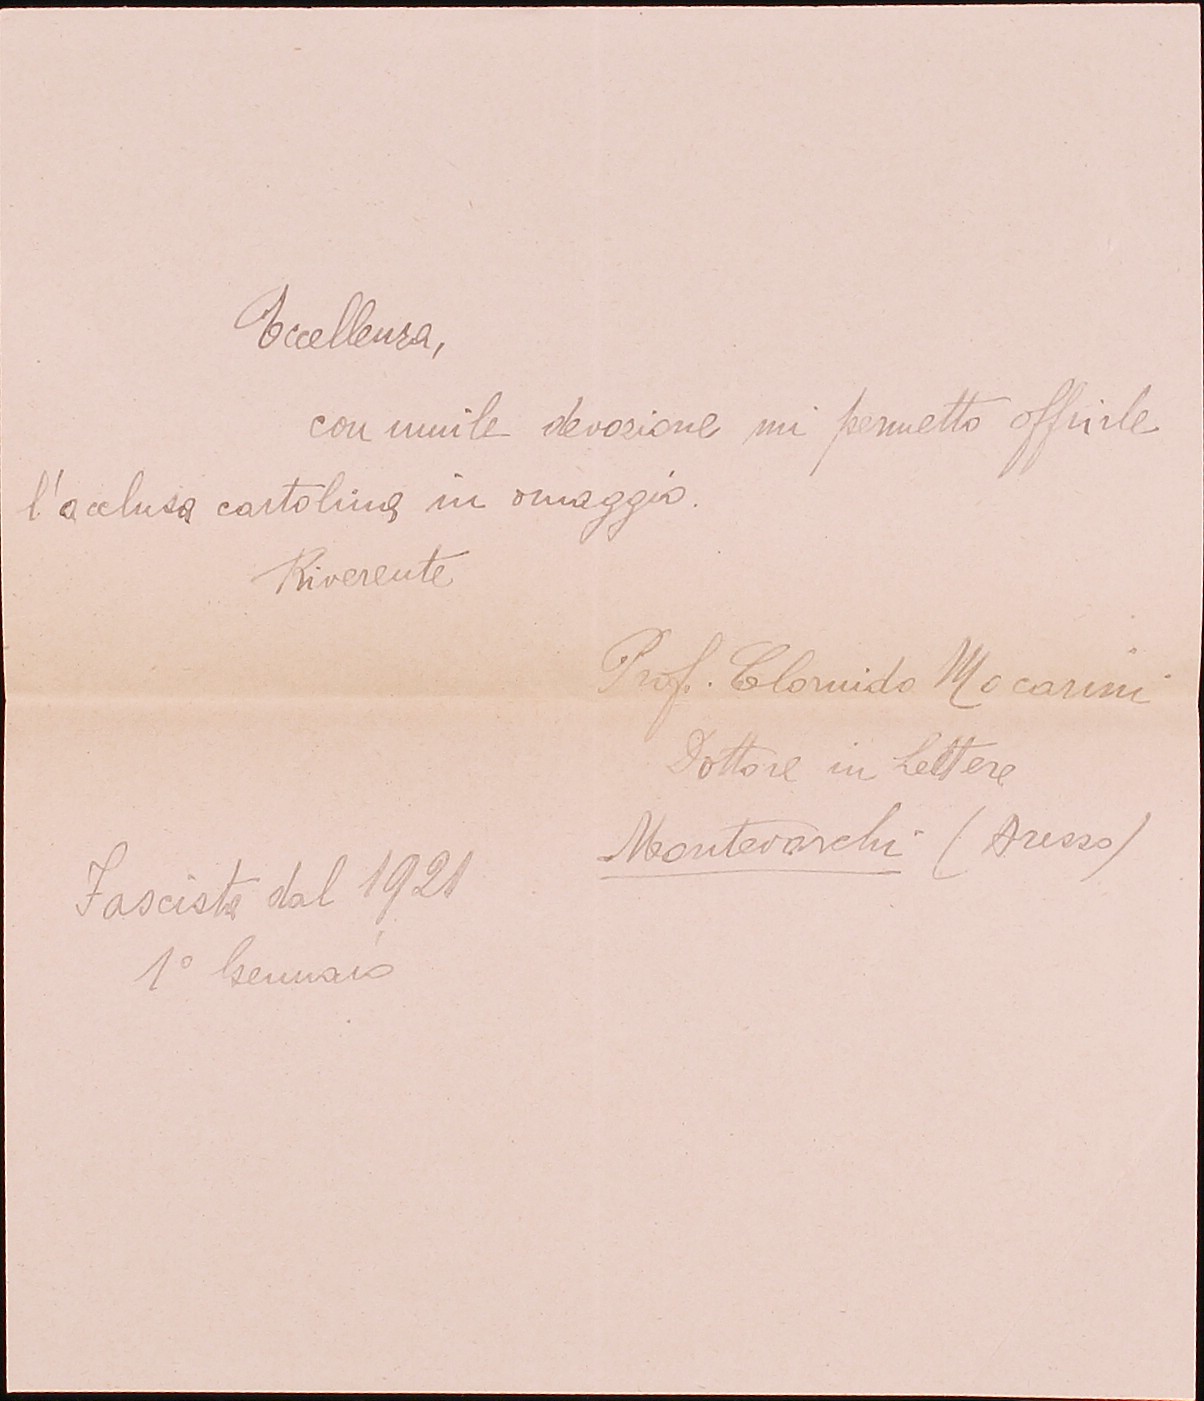 Eccellenza,
con umile devozione mi permetto offrirle
l'acclusa cartolina in omaggio.
Riverente
Prof. Clomido Mocarini
Dottore in Lettere
Montevarchi (Arezzo)
Fascista dal 1921
1° Gennaio